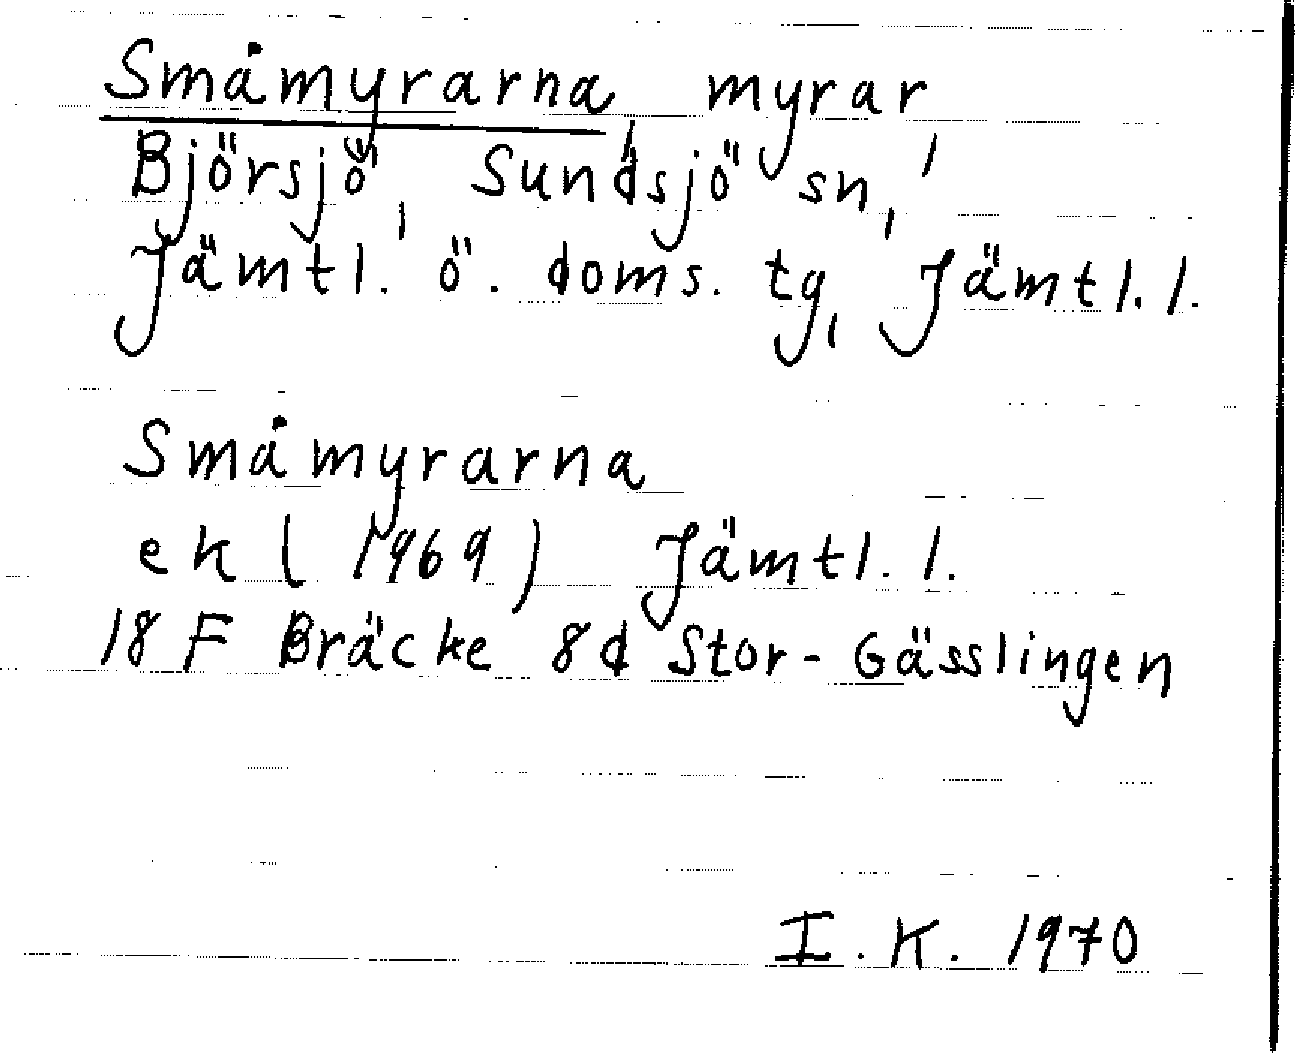 Småmyrarna, myrar,
Björsjö, Sundsjö sn,
Jämtl. ö. doms. tg, Jämtl. l.
Småmyrarna
ek (1969) Jämtl. l.
18 F Bräcke 8d Stor-Gässlingen
I. K. 1970